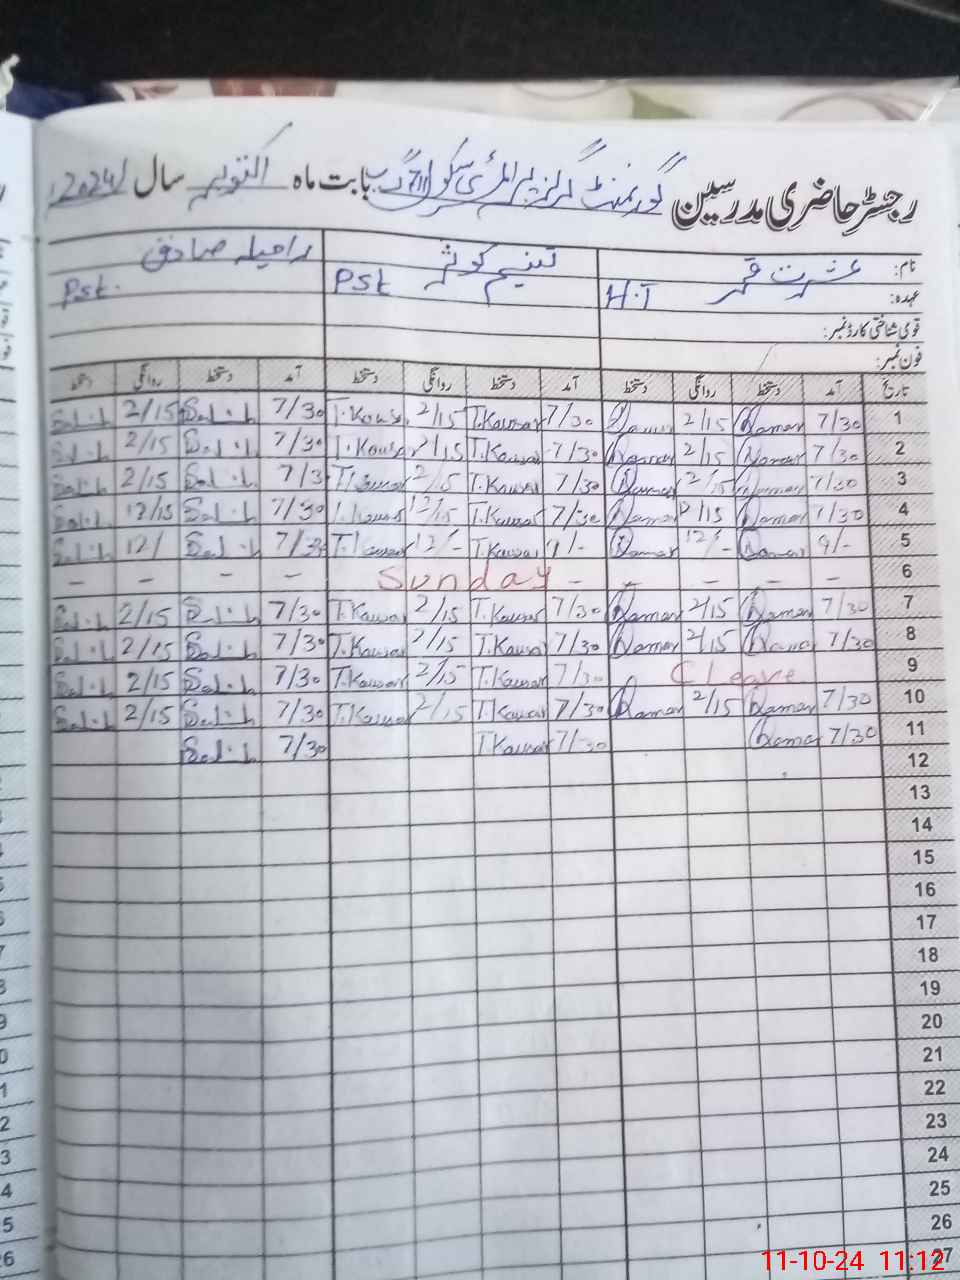 رجسٹر حاضری مدرسین گورنمنٹ گرلز پرائمری سکول بابت ماہ اکتوبر سال 2024
نام: عشرت قمر تسنیم کوثر راحیلہ صادق
عہدہ: H.T Pst Pst.
قومی شناختی کارڈ نمبر:
فون نمبر:
تاریخ آمد دستخط روانگی دستخط آمد دستخط روانگی دستخط آمد دستخط روانگی دستخط
1 7/30 Qamar 2/15 Qamar 7/30 T.Kausar 2/15 T.Kausar 7/30 2/15
2 7/30 Qamar 2/15 Qamar 7/30 T.Kausar 2/15 T.Kausar 7/30 2/15
3 7/30 Qamar 2/15 Qamar 7/30 T.Kausar 2/15 T.Kausar 7/3 2/15
4 7/30 Qamar 2/15 Qamar 7/30 T.Kausar 12/15 T.Kausar 7/30 12/15
5 9/- Qamar 12/- Qamar 9/- T.Kausar 12/- T.Kausar 7/30 12/
6 - - - - - Sunday - - - -
7 7/30 Qamar 2/15 Qamar 7/30 T.Kausar 2/15 T.Kausar 7/30 2/15
8 7/30 Qamar 2/15 Qamar 7/30 T.Kausar 2/15 T.Kausar 7/30 2/15
9 C leave 7/30 T.Kausar 2/15 T.Kausar 7/30 2/15
10 7/30 Qamar 2/15 Qamar 7/30 T.Kausar 2/15 T.Kausar 7/30 2/15
11 7/30 Qamar 7/30 T.Kausar 7/30
12
13
14
15
16
17
18
19
20
21
22
23
24
25
26
27
11-10-24 11:12